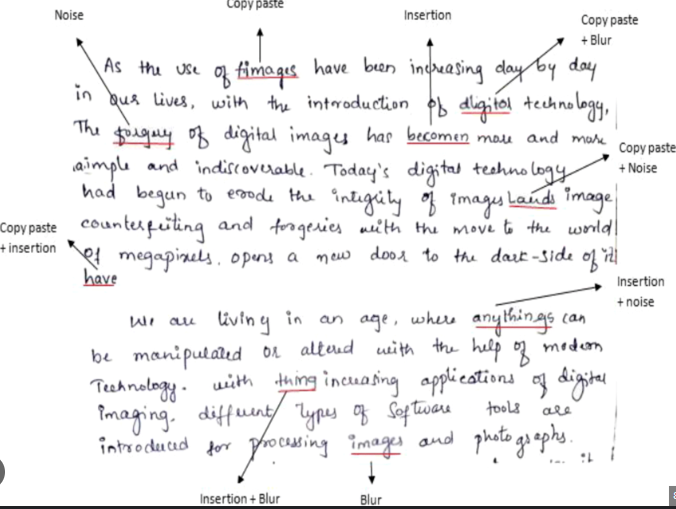 Noise
Copy paste
Insertion
Copy paste
+ Blur
As the use of fimages have been increasing day by day
in our lives, with the introduction of dligital technology,
The forgery of digital images has becomen more and more
simple and indiscoverable. Today's digital technology
Copy paste
+ Noise
had begun to erode the integrity of images Lands image
counterfeiting and forgeries with the move to the world
Copy paste
+ insertion
of megapixels, opens a new door to the dark-side of it
have
Insertion
+ noise
We are living in an age, where anythings can
be manipulated or altered with the help of modern
Technology. with thing increasing applications of digital
imaging. different Types of Software tools are
introduced for processing images and photographs.
Insertion + Blur
Blur